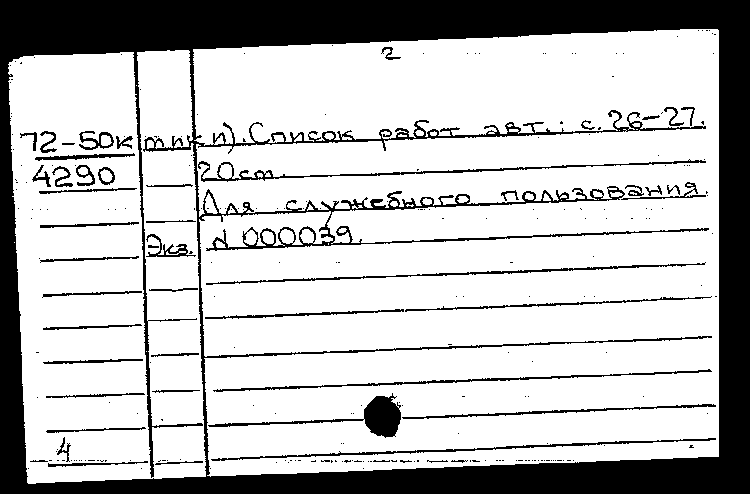 2
72-50к тики). Список работ авт.: с. 26-27.
4290 20 см.
Для служебного пользования.
Экз. N 000039.
4